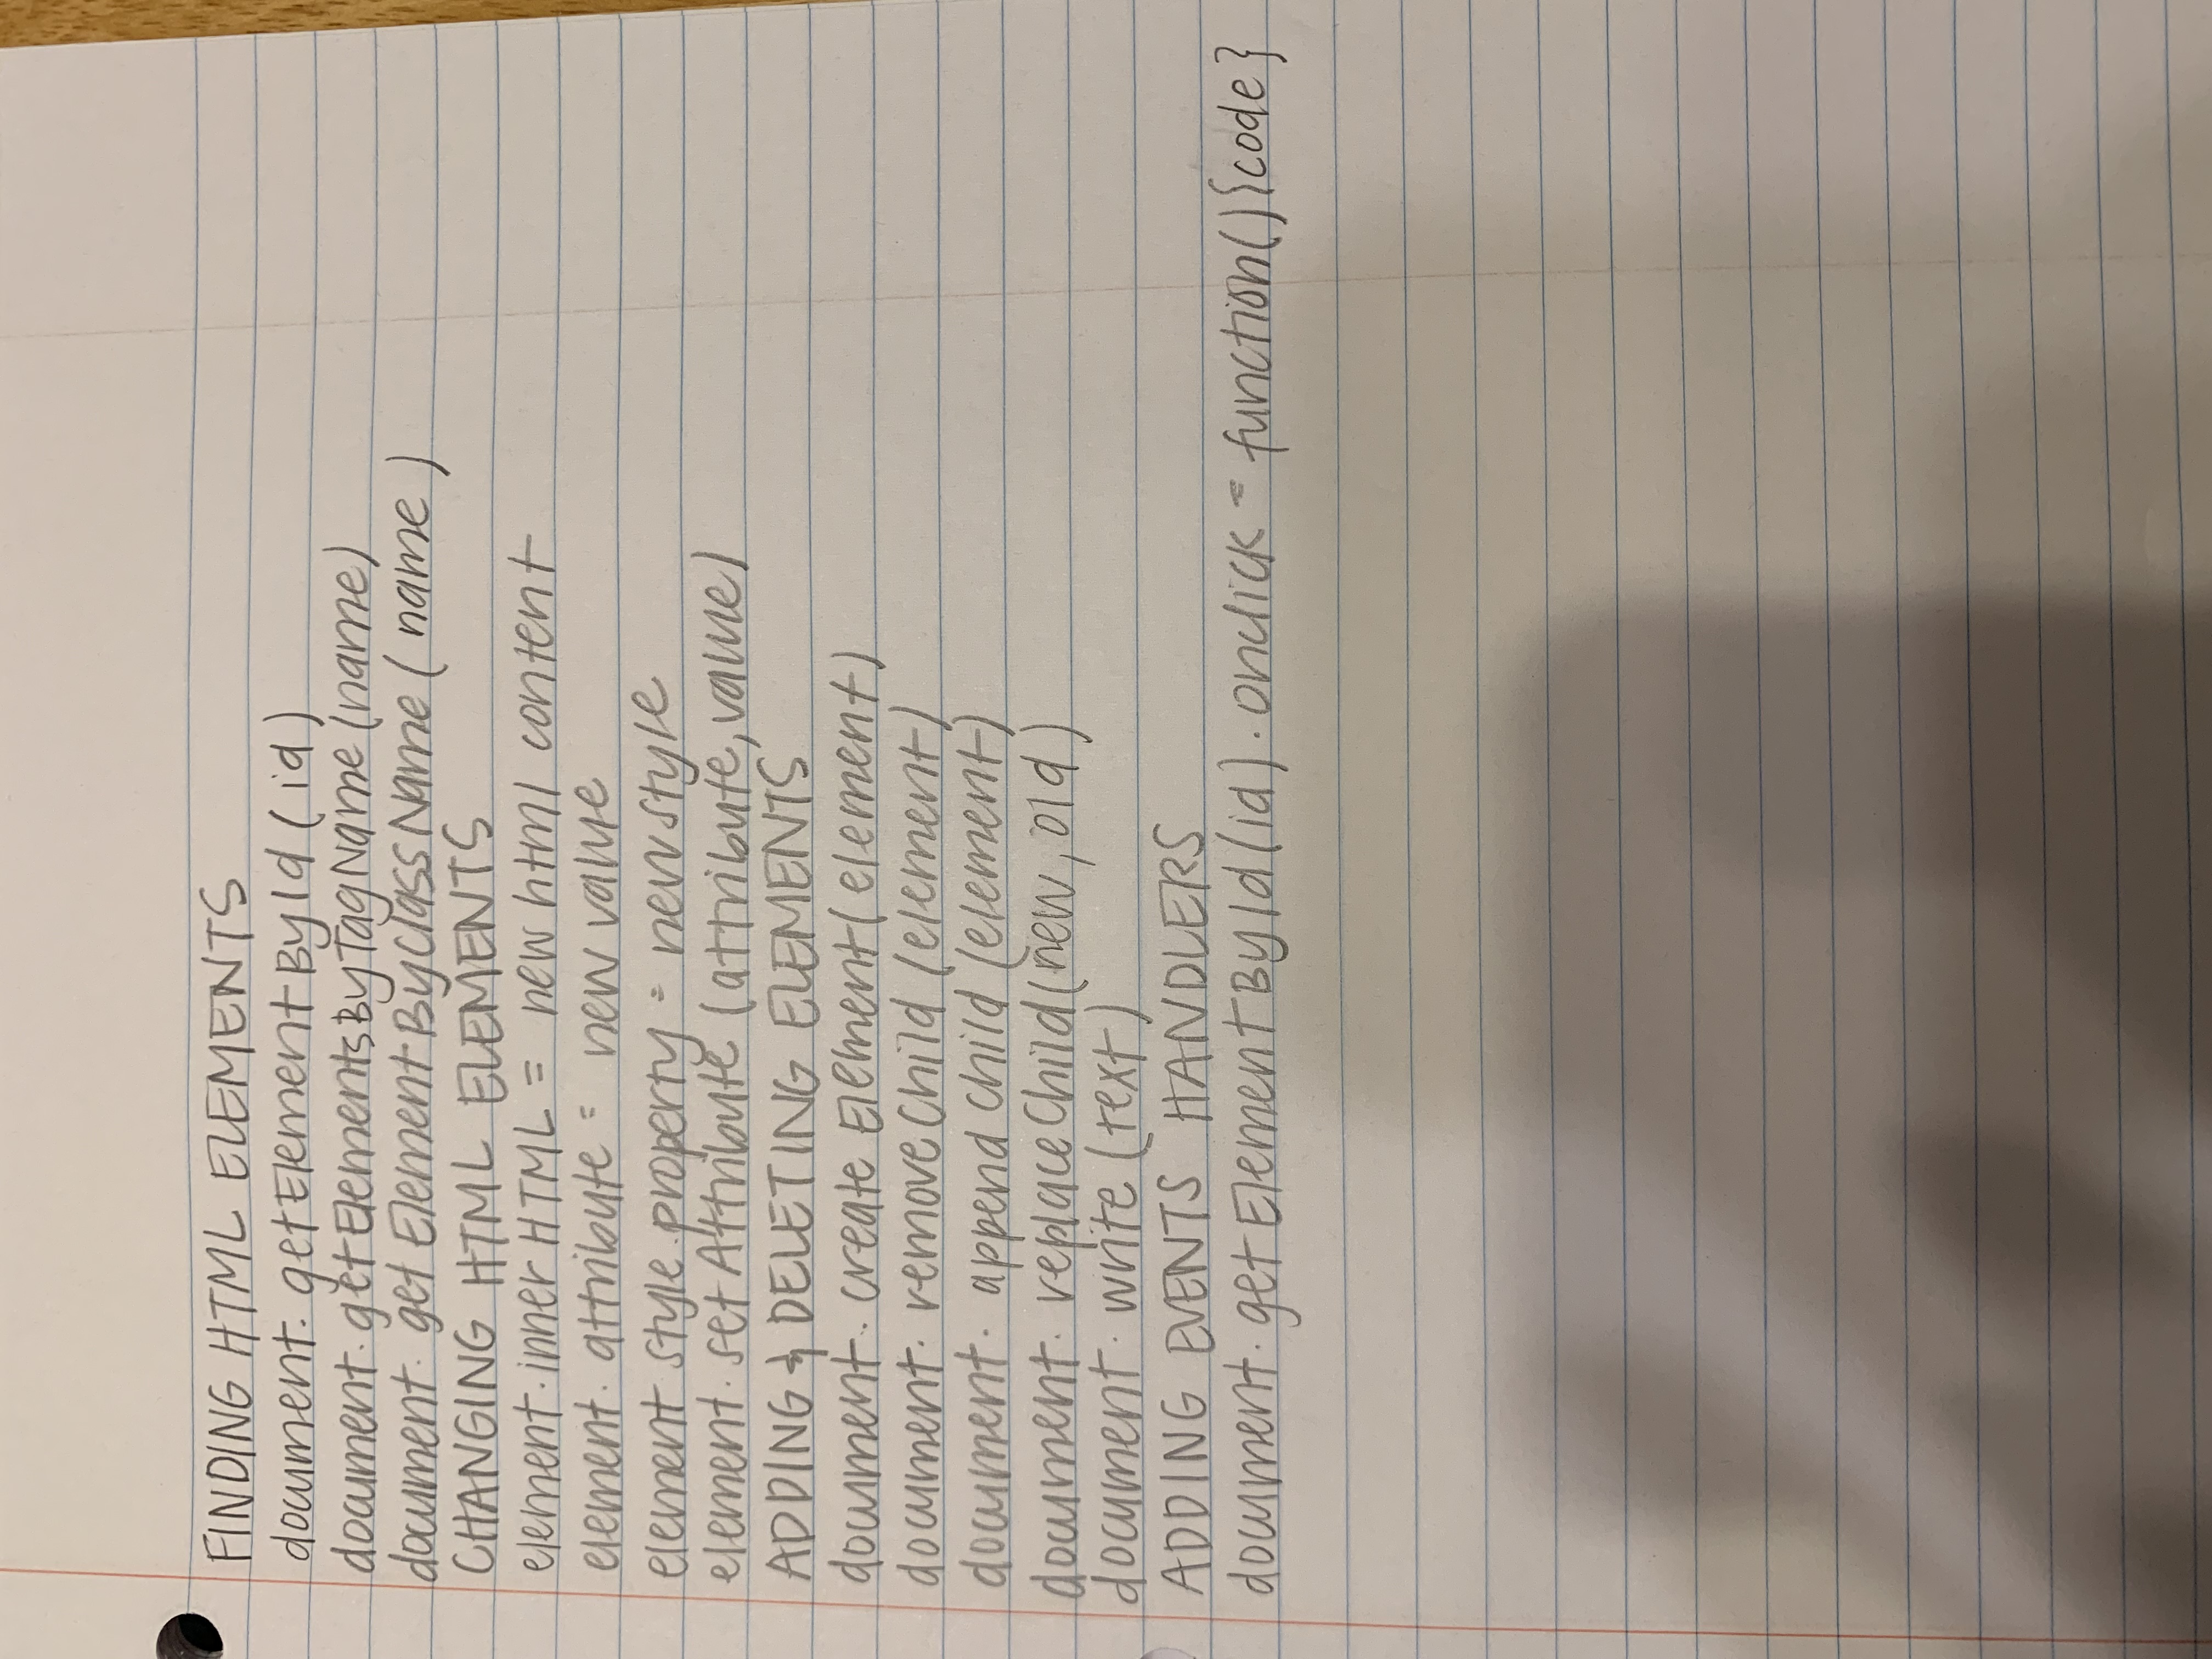 FINDING HTML ELEMENTS
document.getElementById(id)
document.getElementsByTagName(name)
document.getElementByClassName(name)
CHANGING HTML ELEMENTS
element.innerHTML = new html content
element.attribute = new value
element style.property = new style
element.setAttribute(attribute, value)
ADDING & DELETING ELEMENTS
document.createElement(element)
document.removeChild(element)
document.appendChild(element)
document.replaceChild(new, old)
document.write(text)
ADDING EVENTS HANDLERS
document.getElementById(id).onclick = function(){code}